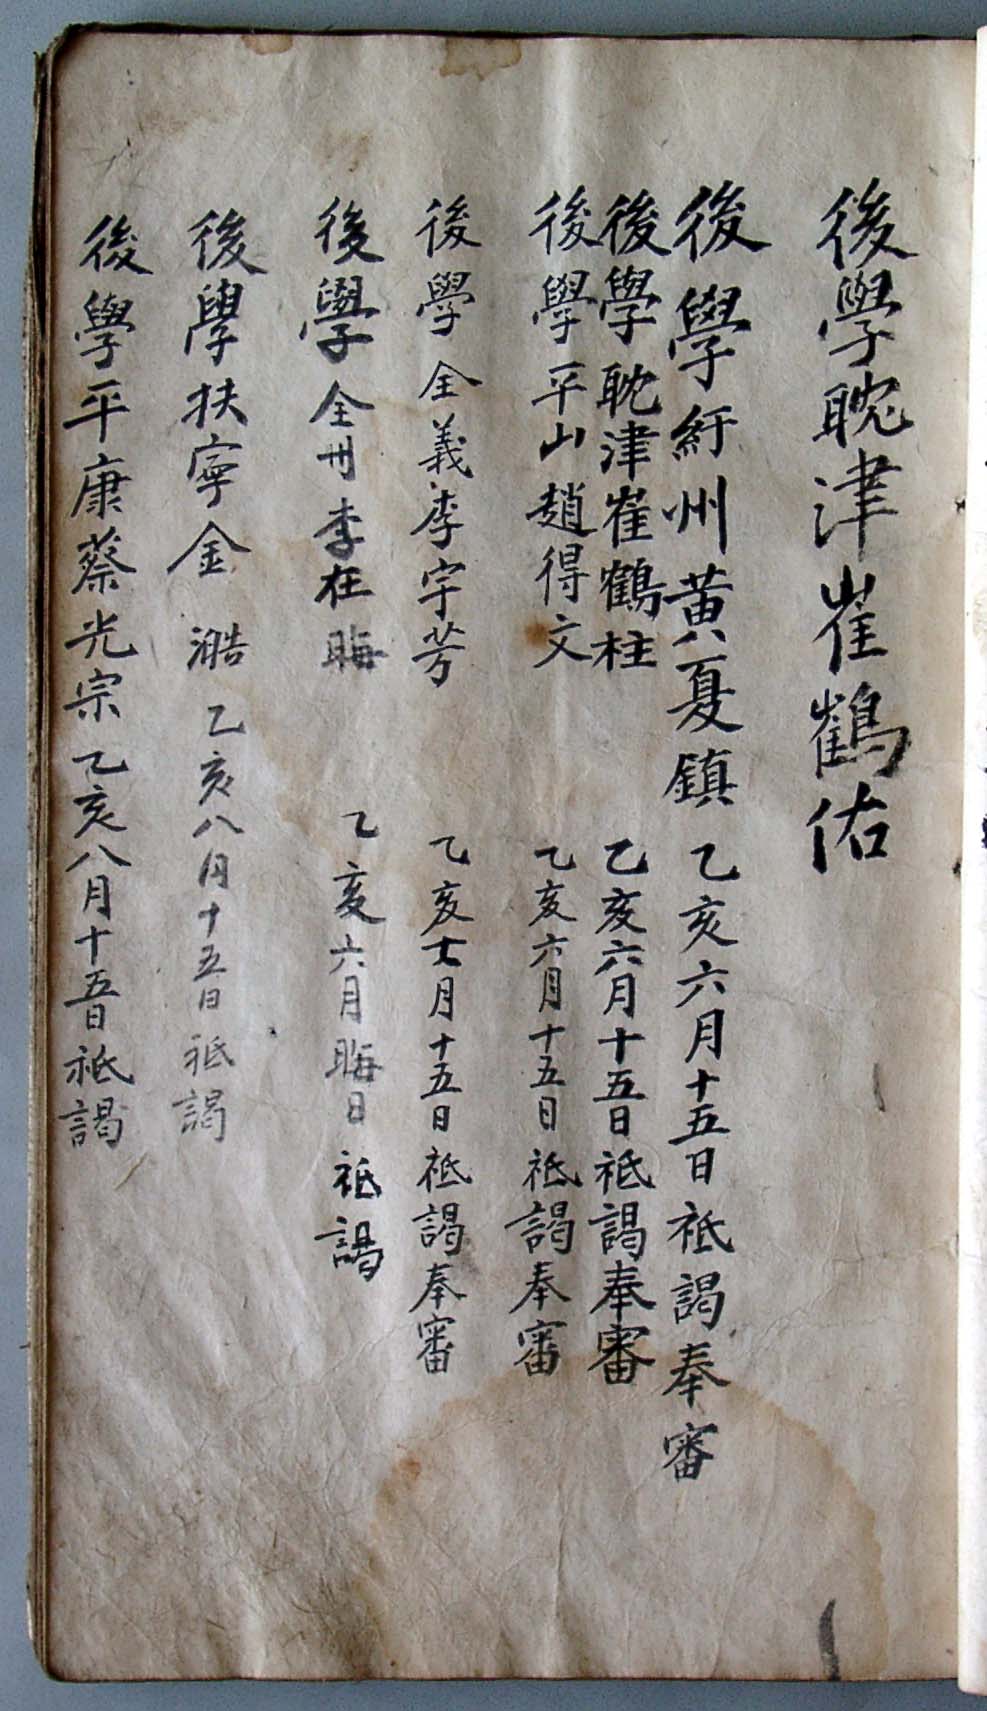 後學耽津崔鶴佑
後學紆州黃夏鎮 乙亥六月十五日祗謁奉審
後學耽津崔鶴柱 乙亥六月十五日祗謁奉審
後學平山趙得文 乙亥六月十五日祗謁奉審
後學全義李宇芳 乙亥七月十五日祗謁奉審
後學全州李在晦 乙亥六月晦日祗謁
後學扶寧金澔 乙亥八月十五日祗謁
後學平康蔡光宗乙亥八月十五日祗謁